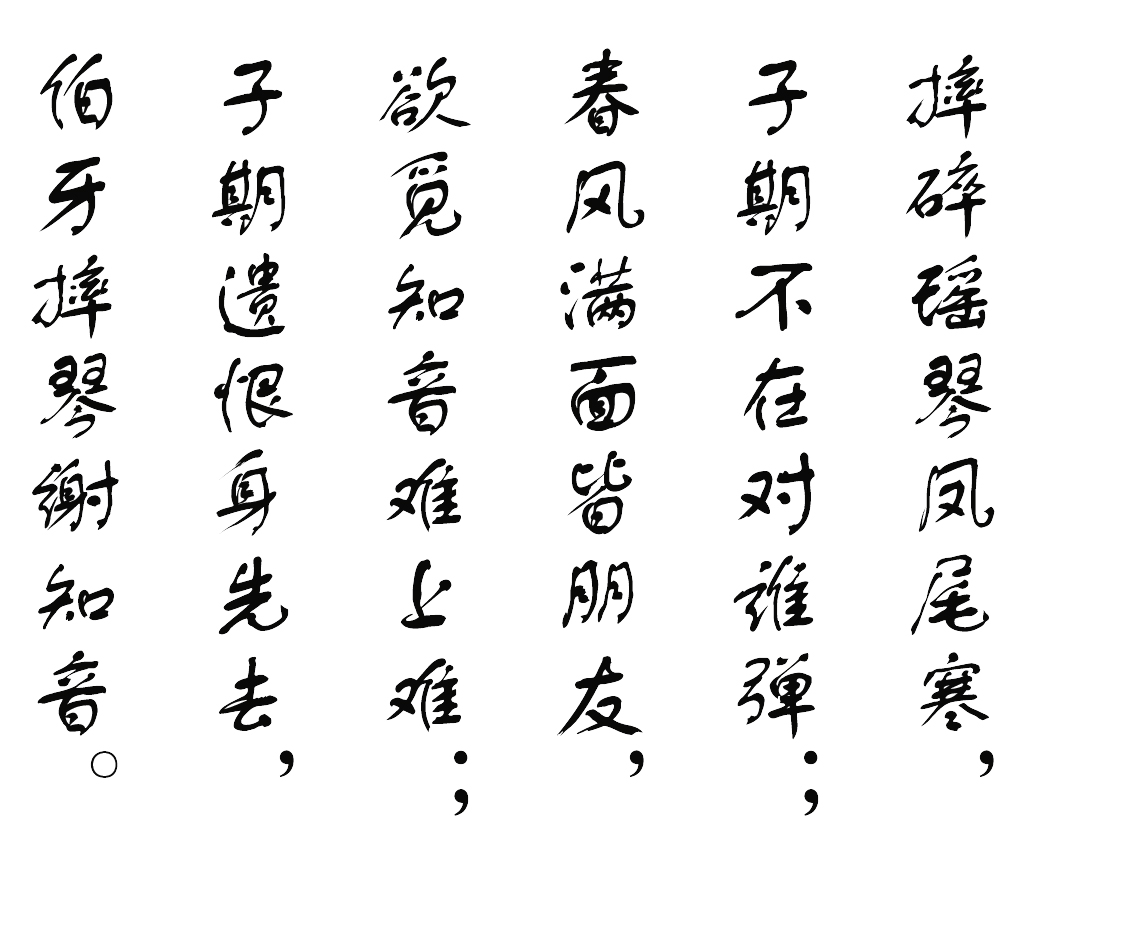 摔碎瑶琴凤尾寒，
子期不在对谁弹；
春风满面皆朋友，
欲觅知音难上难；
子期遗恨身先去，
伯牙摔琴谢知音。